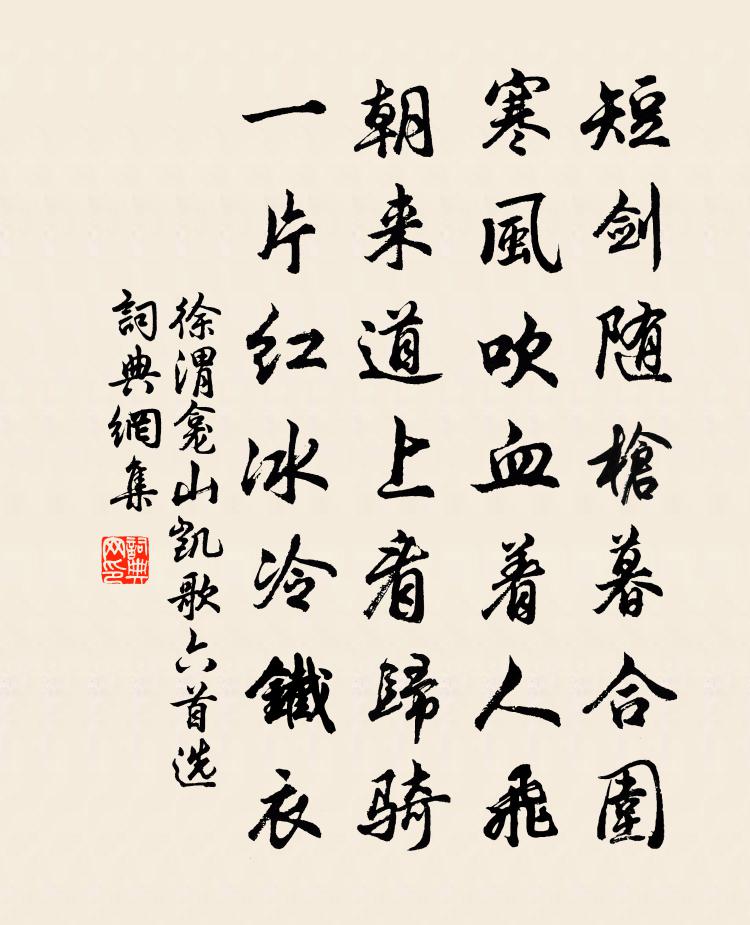 短剑随槍暮合圍
寒風吹血着人飛
朝来道上看歸騎
一片红冰冷鐵衣
徐渭龛山凯歌六首选
詞典網集
詞典网印